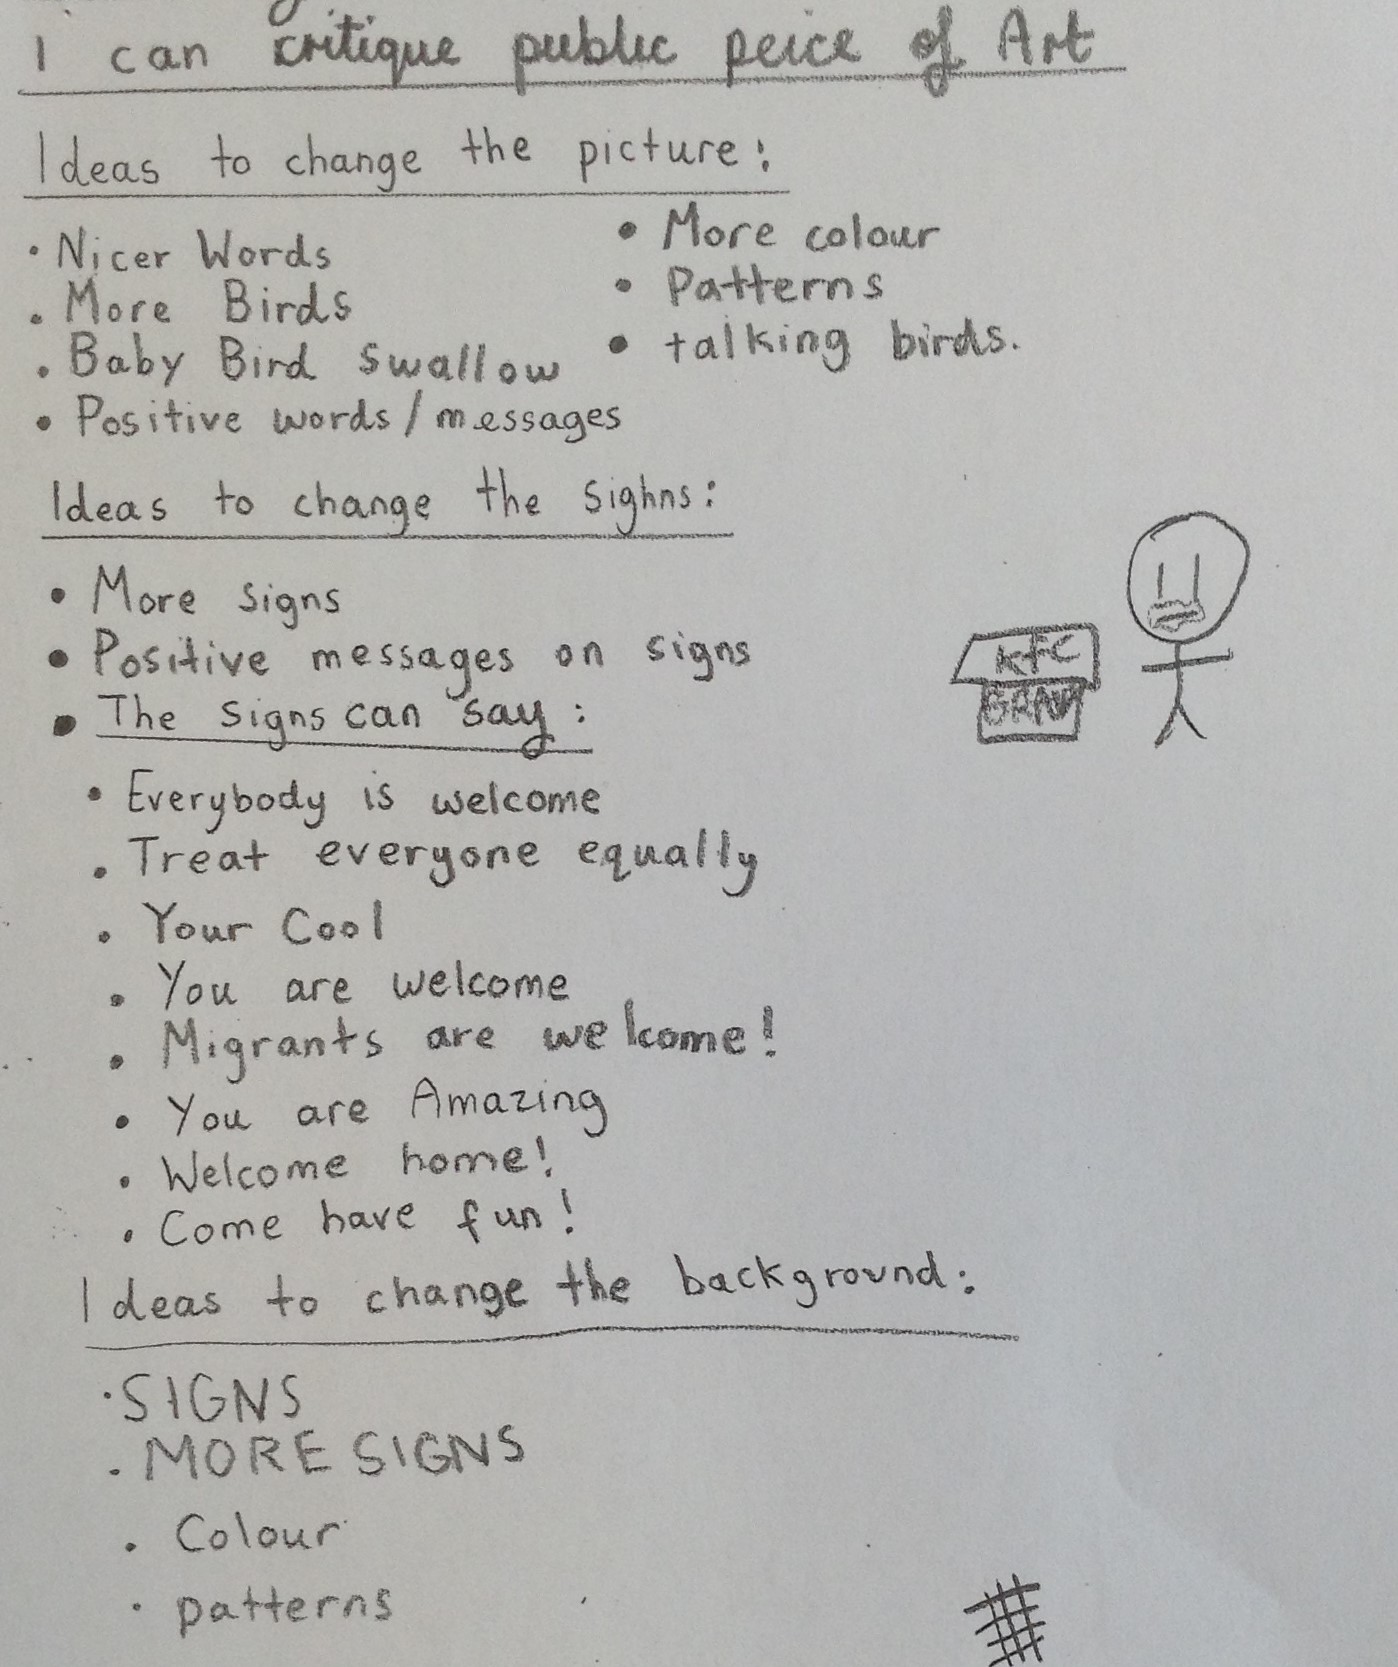 I can critique public peice of Art
Ideas to change the picture:
• Nicer Words
• More Birds
• Baby Bird Swallow
• Positive words/messages
• More colour
• Patterns
• talking birds.
Ideas to change the sighns:
• More signs
• Positive messages on signs
• The signs can say:
• Everybody is welcome
• Treat everyone equally
• Your Cool
• You are welcome
• Migrants are welcome!
• You are Amazing
• Welcome home!
• Come have fun!
KFC
Ideas to change the background:
• SIGNS
• MORE SIGNS
• Colour
• patterns